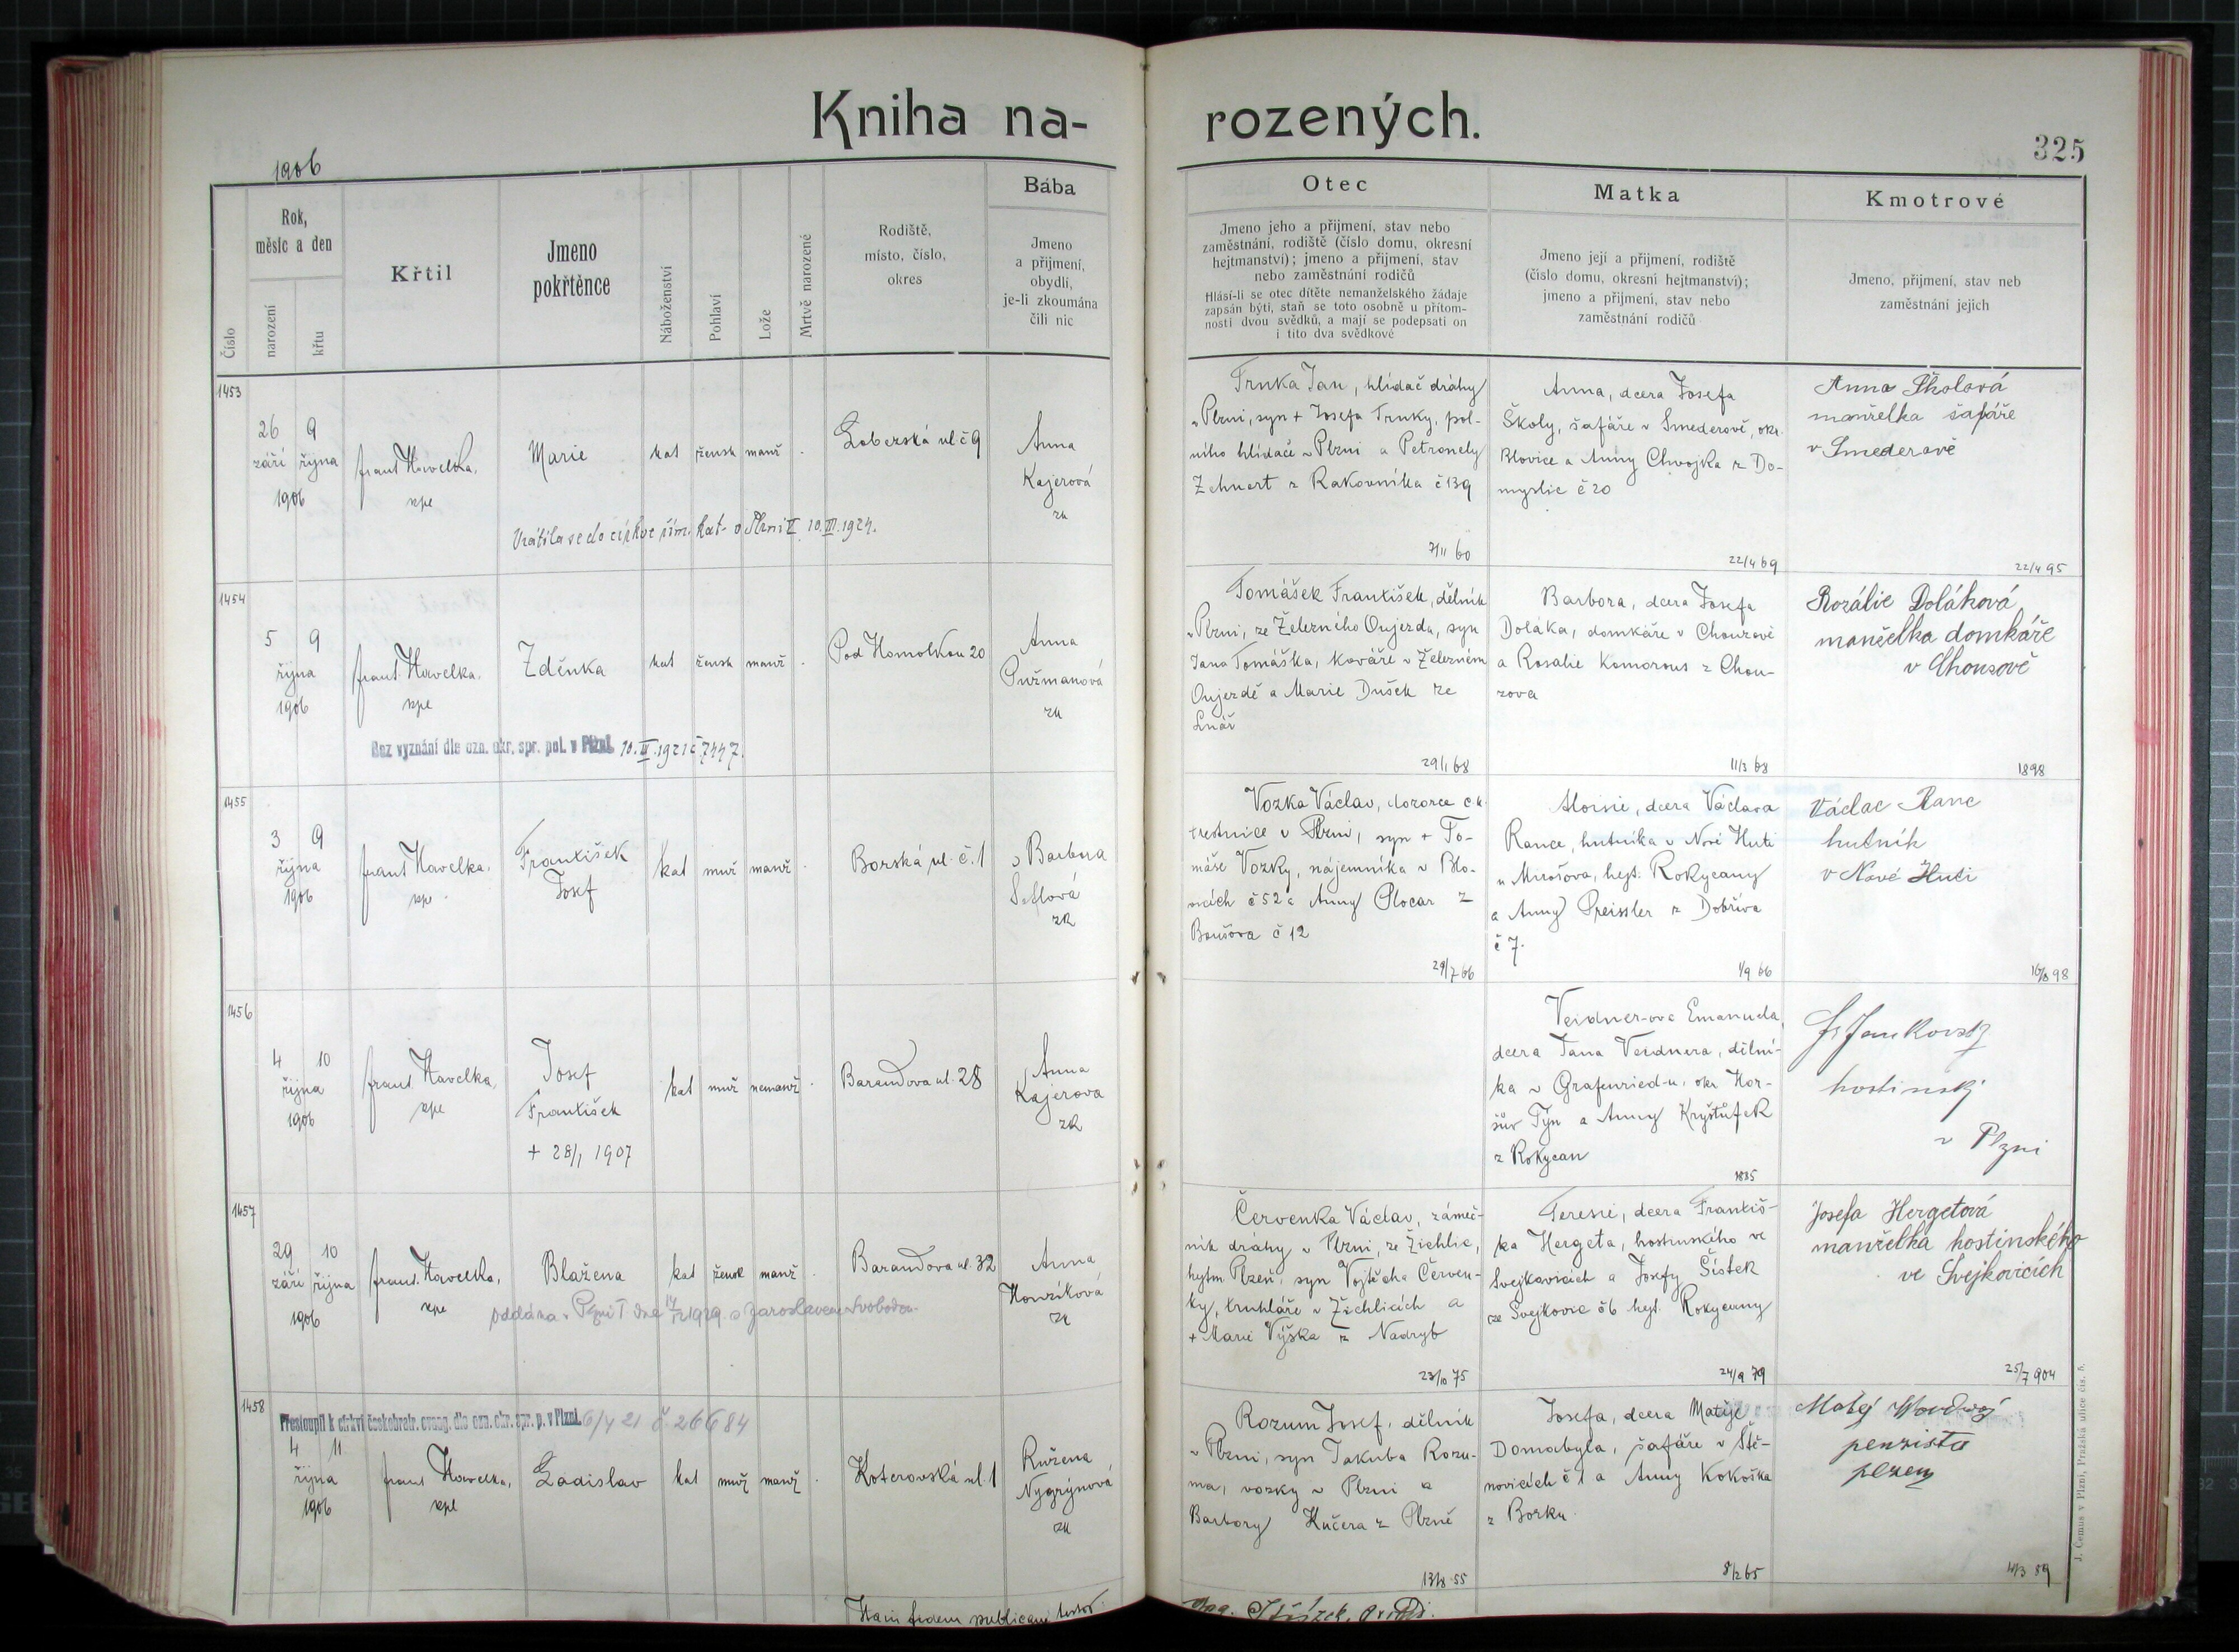 Kniha na-
rozených.
325
1906
Číslo
Rok,
měsíc a den
narození
křtu
Křtil
Jmeno
pokřtěnce
Náboženství
Pohlaví
Lože
Mrtvě narozené
Rodiště,
místo, číslo,
okres
Bába
Jmeno
a přijmení,
obydlí,
je-li zkoumána
čili nic
Otec
Jmeno jeho a přijmení, stav nebo
zaměstnání, rodiště (číslo domu, okresní
hejtmanství); jmeno a přijmení, stav
nebo zaměstnání rodičů
Hlásí-li se otec dítěte nemanželského žádaje
zapsán býti, staň se toto osobně u přítom-
nosti dvou svědků, a mají se podepsati on
i tito dva svědkové
Matka
Jmeno její a přijmení, rodiště
(číslo domu, okresní hejtmanství);
jmeno a přijmení, stav nebo
zaměstnání rodičů
Kmotrové
Jmeno, přijmení, stav neb
zaměstnání jejich
1453
26 9
září října
1906
frant Havelka,
kpl
Marie
kat
žensk
manž
Loberská ul č 9
Anna
Kajerová
zk
Vrátila se do církve řím. kat. v Plzni II 10.III.1924.
Trnka Jan, hlídač dráhy
v Plzni, syn + Josefa Trnky, pol-
ního hlídače v Plzni a Petronely
Zehnert z Rakovníka č 139
7/11 60
Anna, dcera Josefa
Školy, šafáře v Smederově, okr.
Blovice a Anny Chvojka z Do-
myslic č 20
22/4 69
Anna Školová
manželka šafáře
v Smederově
22/4 95
1454
5 9
října
1906
frant. Havelka.
kpl
Zděnka
kat
žensk
manž
Pod Homolkou 20
Anna
Puřmanová
zk
Bez vyznání dle ozn. okr. spr. pol. v Plzni. 10.II.1921 č 7447.
Tomášek František, dělník
v Plzni, ze Železného Oujezda, syn
Jana Tomáška, kováře v Železném
Oujezdě a Marie Dušek ze
Lnář
29/1 68
Barbora, dcera Josefa
Doláka, domkáře v Chouzově
a Rosalie Komorous z Chou-
zova
11/3 68
Rozálie Doláková
manželka domkáře
v Chouzově
1898
1455
3 9
října
1906
frant Havelka,
kpl
František
Josef
kat
muž
manž
Borská ul. č. 1
Barbora
zk
Vozka Václav, dozorce c.k.
trestnice v Plzni, syn + To-
máše Vozky, nájemníka v Blo-
vicích č 52 a Anny Plocar z
Boušova č 12
29/7 66
Aloisie, dcera Václava
Rance, hutníka v Nové Huti
u Mirošova, hejt. Rokycany
a Anny Preissler z Dobříva
č 7.
1/9 66
Václav Ranc
hutník
v Nové Huti
16/8 98
1456
4 10
října
1906
frant. Havelka,
kpl
Josef
František
+ 28/1 1907
kat
muž
nemanž
Barandova ul. 28
Anna
Kajerova
zk
Veidner-ova Emanuela,
dcera Jana Veidnera, dělní-
ka v Grafenried-u, okr. Hor-
šův Týn a Anny Kryštůfek
z Rokycan
1885
Fr Jankovský
hostinský
v Plzni
1457
29 10
září října
1906
frant. Havelka,
kpl
Blažena
kat
žensk
manž
Barandova ul. 32
Anna
Honzíková
zk
Oddána v Plzni I dne 14/12 1929 s Jaroslavem Svobodou.
Červenka Václav, zámeč-
ník dráhy v Plzni, ze Žichlic,
hejtm Plzeň, syn Vojtěcha Červen-
ky, truhláře v Žichlicích a
+ Marie Výška z Nadryb
23/10 75
Teresie, dcera Františ-
ka Hergeta, hostinského ve
Svejkovicích a Josefy Šístek
ze Svejkovic č 6 hejt. Rokycany
24/9 79
Josefa Hergetová
manželka hostinského
ve Svejkovicích
25/7 904
1458
Přestoupil k církvi českobratr. evang. dle ozn. okr. spr. p. v Plzni. 6/4 21 č. 26684
4 11
října
1906
frant Havelka,
kpl
Ladislav
kat
muž
manž
Koterovská ul 1
Ružena
Nygrýnová
zk
Rozum Josef, dělník
v Plzni, syn Jakuba Rozu-
ma, vozky v Plzni a
Barbory Kučera z Plzně
13/8 55
Josefa, dcera Matěje
Domabyla, šafáře v Ště-
novicích č 1 a Anny Kokoška
z Borku
8/2 65
Matěj
penzista
plzen
4/3 59
Hanc fidem publicam testor.
J. Čemus v Plzni, Pražská ulice čís. 5.